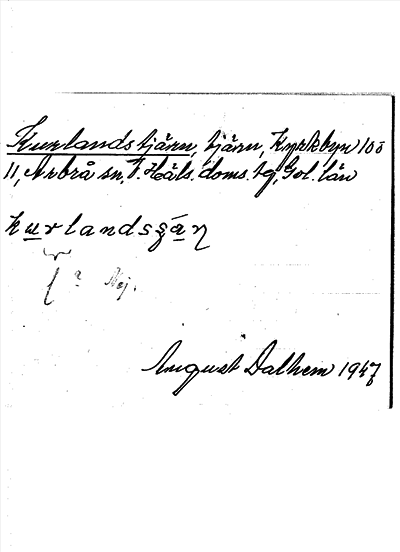 Kurlandstjärn, tjärn, Kyrkbyn 100
11, Arbrå sn, V. Häls. doms. tg, Gvl. län
kurlandsʂä̀n
? Nej.
August Dalhem 1947